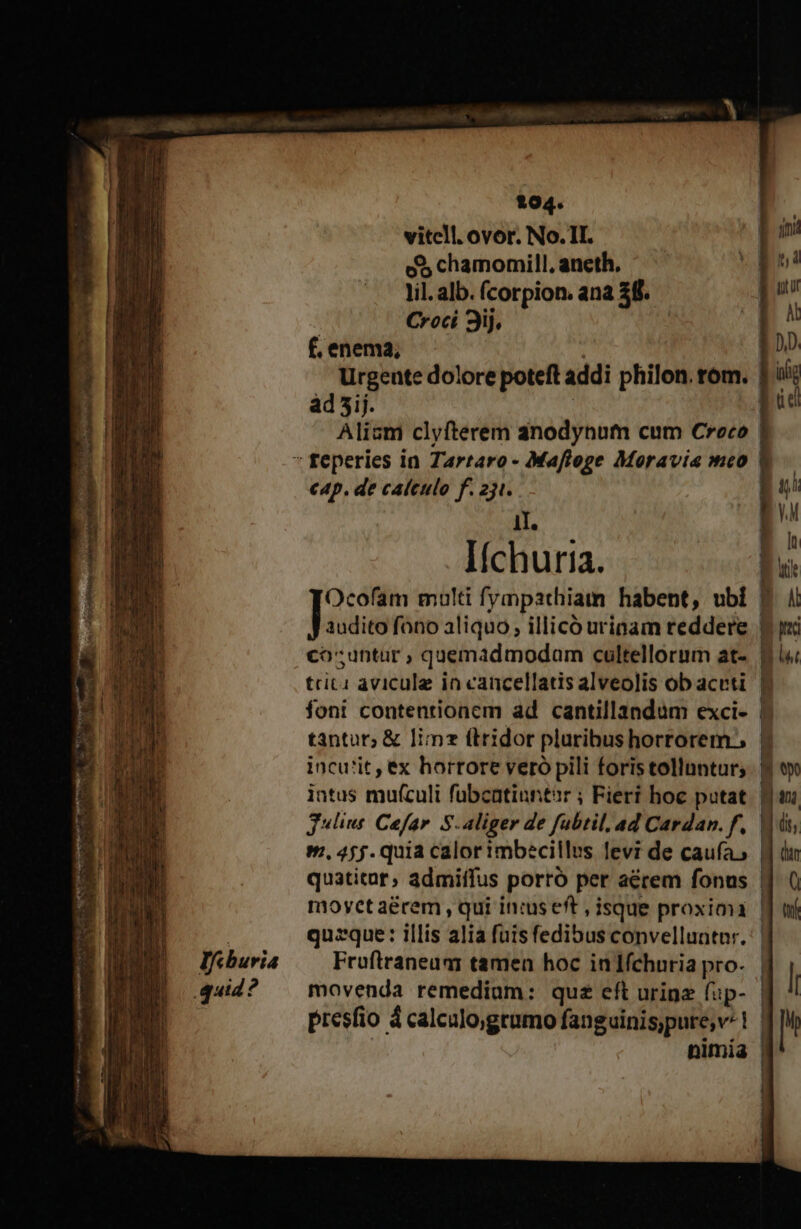 104.
vitell. ovor. No. II.
chamomill. aneth.
lil. alb. ſcorpion. ana ʒß.
Croci ℈ij.
f. enema;
Urgente dolore poteſt addi philon. rom.
ad ʒij.
Alium clyſterem anodynum cum Croco
reperies in Tartaro-Maſtoge Moravia meo
cap. de calculo f. 231.
II.
Iſchuria.
JOcoſam multi ſympathiam habent, ubi
audito ſono aliquo, illicò urinam reddere
coguntur, quemadmodum cultellorum at-
tritu aviculæ in cancellatis alveolis ob acuti
ſoni contentionem ad cantillandum exci-
tantur, & limæ ſtridor pluribus horrorem
incutit, ex horrore verò pili foris tolluntur,
intus muſculi ſubcutiuntur; Fieri hoc putat
Julius Ceſar Scaliger de ſubtil. ad Cardan. f.
m. 455. quia calor imbecillus levi de cauſa,
quatitur, admiſſus porrò per aërem ſonus
movet aërem, qui intus eſt, isque proxima
quæque: illis alia ſuis ſedibus convelluntur.
Iſchuria
quid?
Fruſtraneum tamen hoc in Iſchuria pro-
movenda remedium: quæ eſt urinæ ſup-
presſio á calculo, grumo ſanguinis, pure, vel
nimia